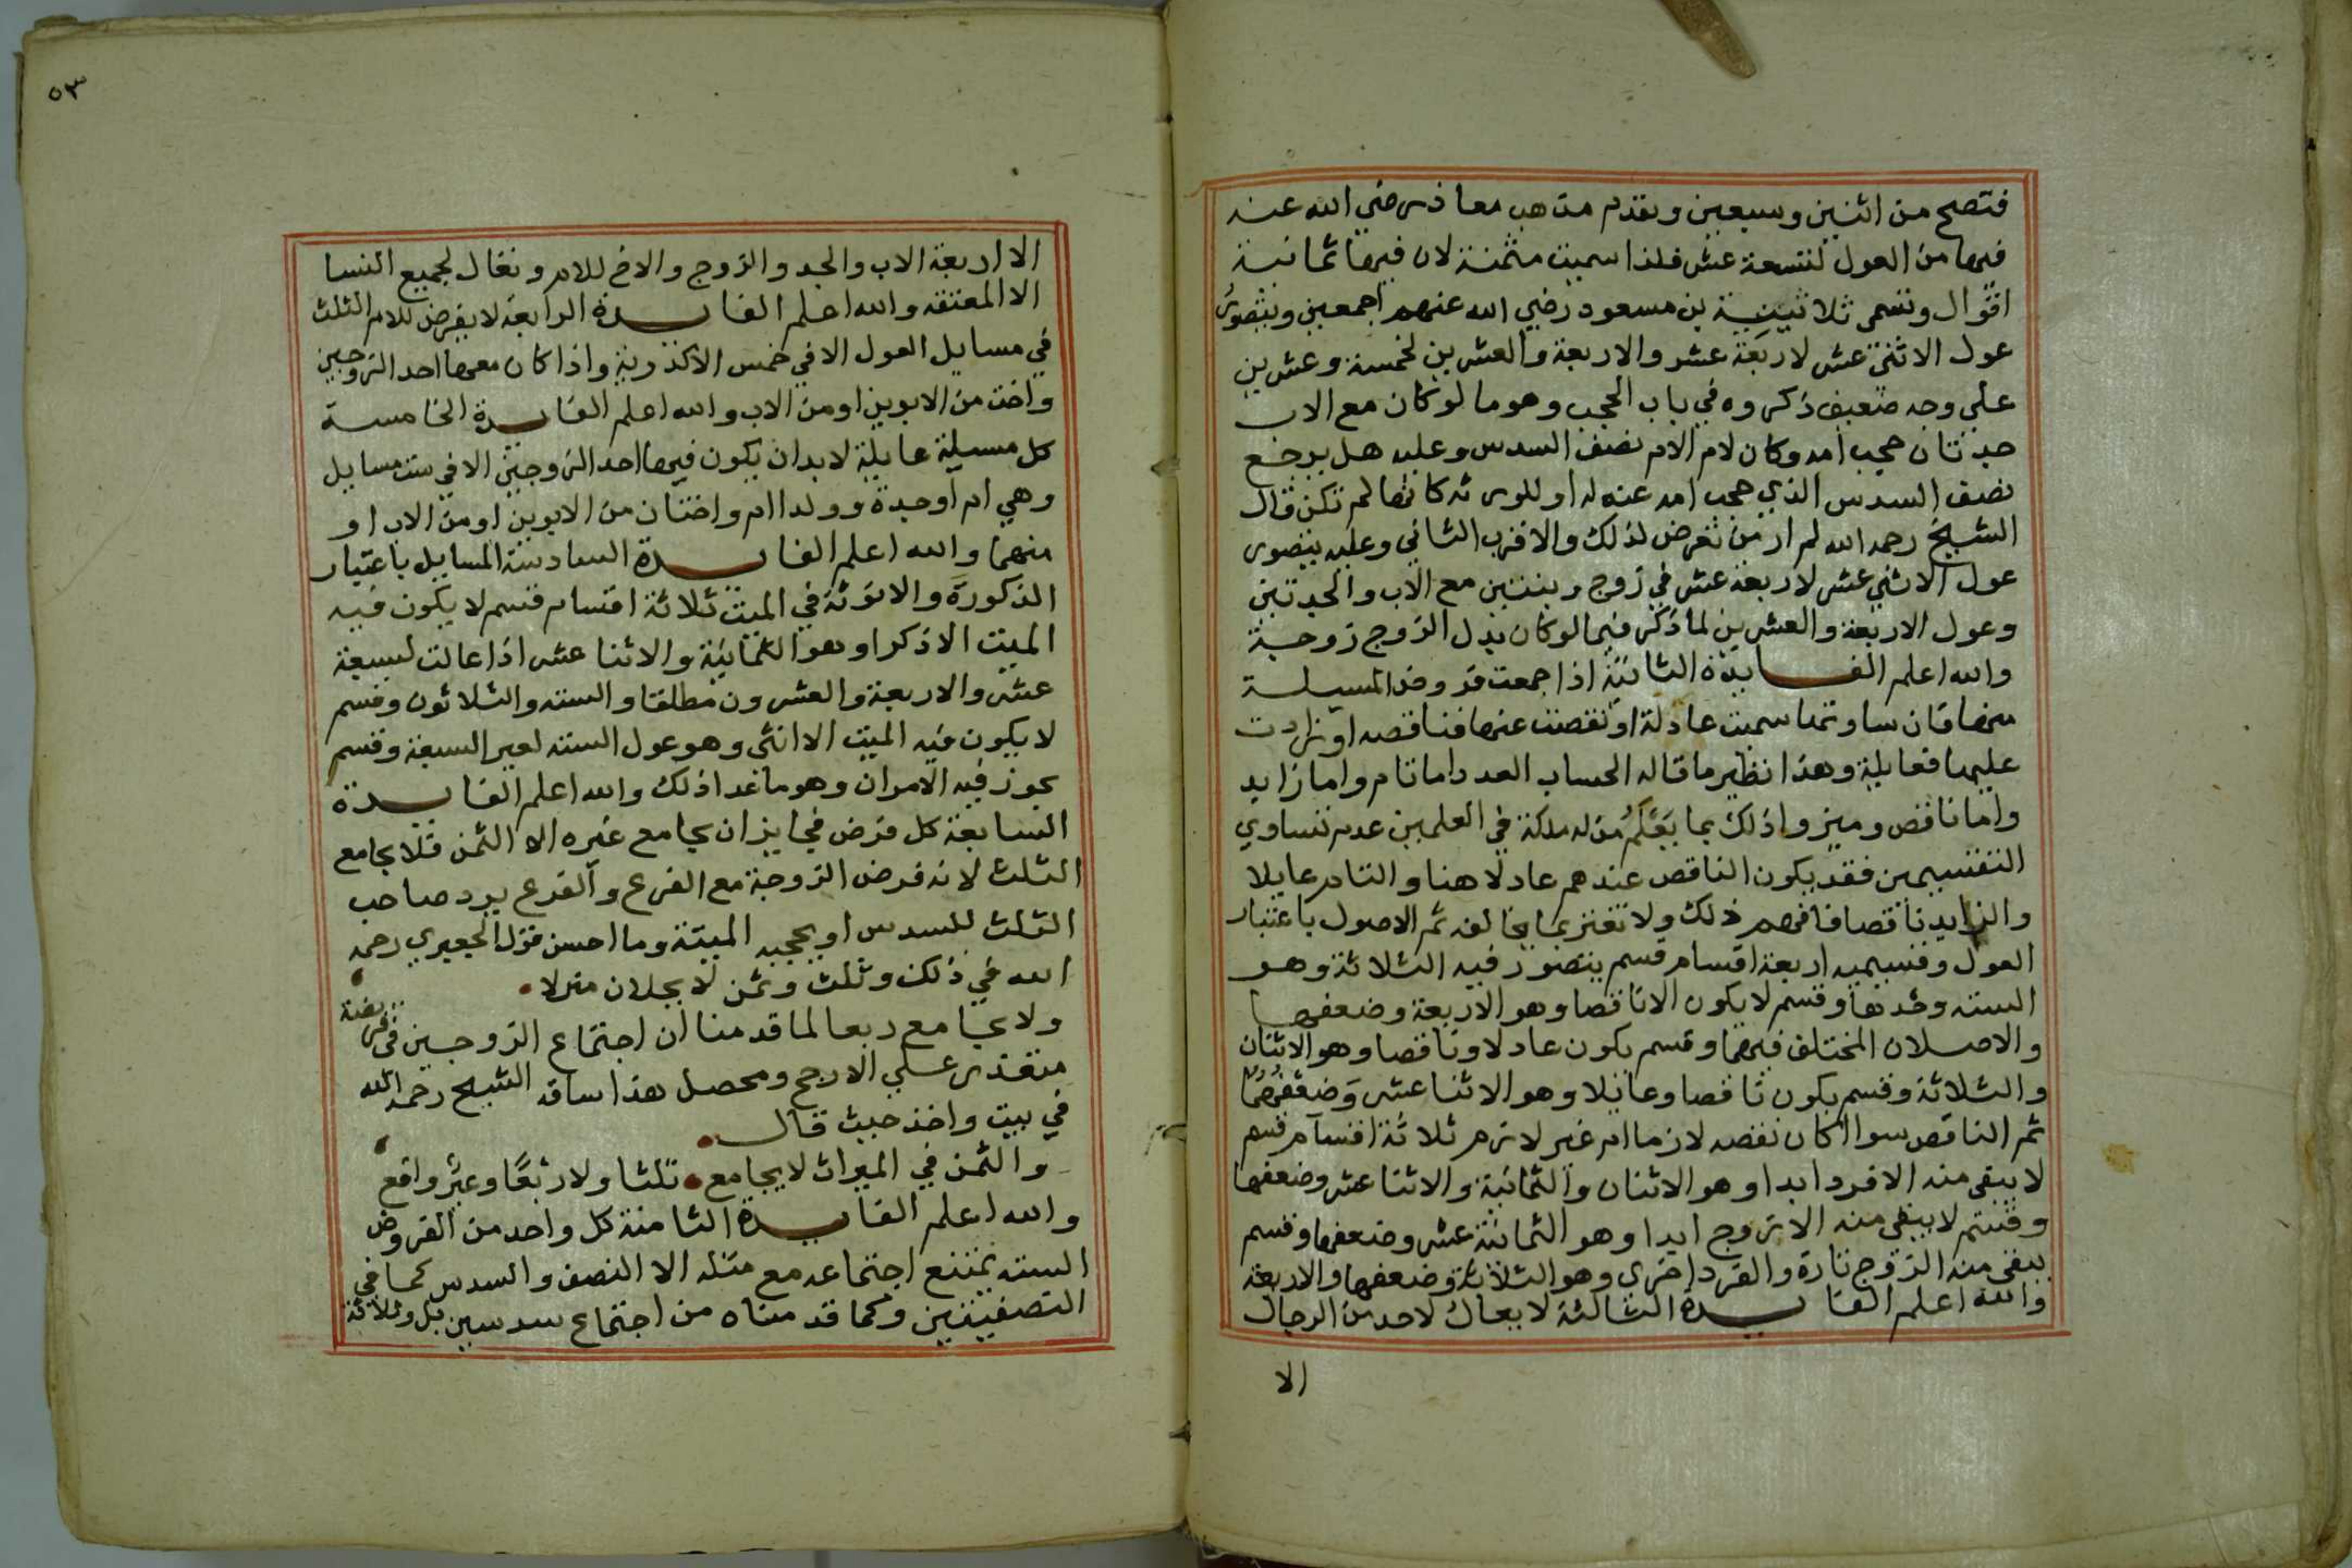 فتصح من اثنين وسبعين وتقدم مذهب معاذ رضي الله عنه
فيها من العول لتسعة عشر فلذا سميت مثمنة لان فيها ثمانية
اقوال وتسمى ثلاثينية بن مسعود رضي الله عنهم اجمعين ويتصور
عول الاثنى عشر لاربعة عشر والاربعة والعشرين لخمسة وعشرين
على وجه ضعيف ذكروه في باب الحجب وهو ما لو كان مع الاب
جدتان حجب امه وكان لام الام نصف السدس وعليه هل يرجع
نصف السدس الذي حجب امه عنه له او للورثة كانها لم تكن قال
الشيخ رحمه الله لم ار من تعرض لذلك والاقرب الثاني وعليه يتصور
عول الاثني عشر لاربعة عشر في زوج وبنتين مع الاب والجدتين
وعول الاربعة والعشرين لما ذكر فيما لو كان بدل الزوج زوجة
والله اعلم الفايدة الثانية اذا جمعت فروض المسيلة
منها فان ساوتها سميت عادلة او نقصت عنها فناقصه او زادت
عليها فعايلة وهذا نظير ما قاله الحساب العدد اما تام واما زايد
واما ناقص وميزوا ذلك بما يَعْلَمُ من له ملكة في العلمين عدم تساوي
التقسيمين فقد يكون الناقص عندهم عادلا هنا والتام عايلا
والزايد ناقصا فافهم ذلك ولا تغتر بما يخالفه ثم الاصول باعتبار
العول وقسيميه اربعة اقسام قسم يتصور فيه الثلاثة وهو
السته وحدها وقسم لا يكون الا ناقصا وهو الاربعة وضعفها
والاصلان المختلف فيهما وقسم يكون عادلا وناقصا وهو الاثنان
والثلاثة وقسم يكون ناقصا وعايلا وهو الاثنا عشر وضعفها
ثم الناقص سوا اكان نقصه لازما ام غير لازم ثلاثة اقسام قسم
لا يبقى منه الا فردا ابدا وهو الاثنان والثمانية والاثنا عشر وضعفها
وقسم لا يبقى منه الا زوج ابدا وهو الثمانية عشر وضعفها وقسم
يبقى منه الزوج تارة والفرد اخرى وهو الثلاثة وضعفها والاربعة
والله اعلم الفايدة الثالثة لا يعال لاحد من الرجال
الا
٥٣
الا اربعة الاب والجد والزوج والاخ للام وتعال لجميع النسا
الا المعتقه والله اعلم الفايدة الرابعة لا يفرض للام الثلث
في مسايل العول الا في خمس الاكدرية واذا كان معها احد الزوجين
واخت من الابوين او من الاب والله اعلم الفايدة الخامسة
كل مسيلة عايلة لا بد ان يكون فيها احد الزوجين الا في ست مسايل
وهي ام او جدة وولدا ام واختان من الابوين او من الاب او
منهما والله اعلم الفايدة السادسة المسايل باعتبار
الذكورة والانوثة في الميت ثلاثة اقسام قسم لا يكون فيه
الميت الا ذكرا وهو الثمانية والاثنا عشر اذا عالت لسبعة
عشر والاربعة والعشرون مطلقا والسته والثلاثون وقسم
لا يكون فيه الميت الا انثى وهو عول السته لغير السبعة وقسم
يجوز فيه الامران وهو ما عدا ذلك والله اعلم الفايدة
السابعة كل فرض فجايز ان يجامع غيره الا الثمن فلا يجامع
الثلث لانه فرض الزوجة مع الفرع والفرع يرد صاحب
الثلث للسدس او يحجبه البتة وما احسن قول الجعبري رحمه
الله في ذلك وثلث وثمن لا يحلان منزلا
ولا يجامع ربعا لما قدمنا ان اجتماع الزوجين في فريضة
متعذر على الارجح ومحصل هذا ساقه الشيخ رحمه الله
في بيت واحد حيث قال
والثمن في الميراث لا يجامع ثلثا ولا ربعًا وغيرُ واقع
والله اعلم الفايدة الثامنة كل واحد من الفروض
السته يمتنع اجتماعه مع مثله الا النصف والسدس كما في
النصفيتين وكما قدمناه من اجتماع سدسين بل وثلاثة